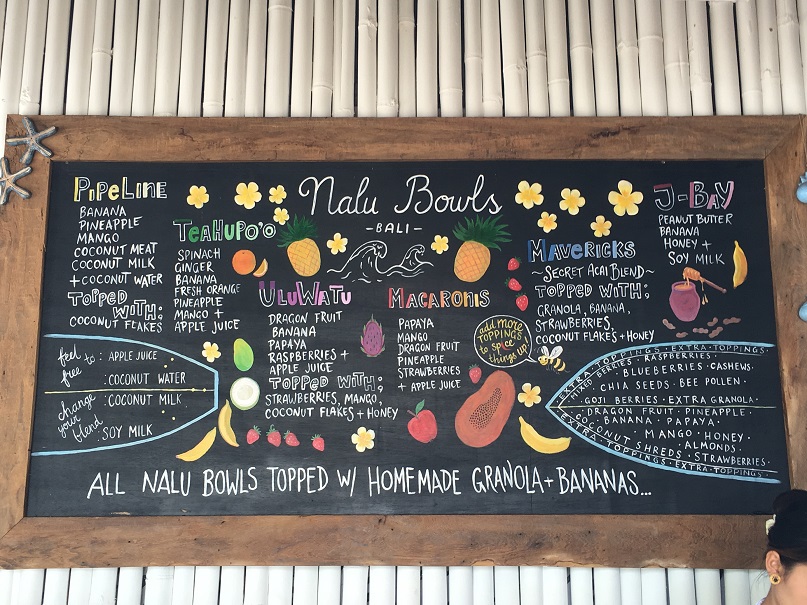 Nalu Bowls
-BALI-
PIPELINE
BANANA
PINEAPPLE
MANGO
COCONUT MEAT
COCONUT MILK
+ COCONUT WATER
TOPPED WITH:
COCONUT FLAKES
TEAHUPO'O
SPINACH
GINGER
BANANA
FRESH ORANGE
PINEAPPLE
MANGO +
APPLE JUICE
ULUWATU
DRAGON FRUIT
BANANA
PAPAYA
RASPBERRIES +
APPLE JUICE
TOPPED WITH;
STRAWBERRIES, MANGO,
COCONUT FLAKES + HONEY
MACARONIS
PAPAYA
MANGO
DRAGON FRUIT
PINEAPPLE
STRAWBERRIES
+ APPLE JUICE
MAVERICKS
~SECRET ACAI BLEND~
TOPPED WITH;
GRANOLA, BANANA,
STRAWBERRIES,
COCONUT FLAKES + HONEY
J-BAY
PEANUT BUTTER
BANANA
HONEY +
SOY MILK
feel free to :
change your blend
APPLE JUICE
:COCONUT WATER
:COCONUT MILK
:SOY MILK
add more
TOPPINGS
to spice
things up!
EXTRA·TOPPINGS·EXTRA·TOPPINGS·
MIXED BERRIES · RASPBERRIES ·
· BLUEBERRIES · CASHEWS·
CHIA SEEDS · BEE POLLEN ·
GOJI BERRIES · EXTRA GRANOLA·
DRAGON FRUIT · PINEAPPLE ·
BANANA · PAPAYA ·
· MANGO · HONEY ·
· ALMONDS ·
COCONUT SHREDS · STRAWBERRIES ·
EXTRA·TOPPINGS·EXTRA·TOPPINGS·EXTRA·TOPPINGS·
ALL NALU BOWLS TOPPED W/ HOMEMADE GRANOLA + BANANAS...